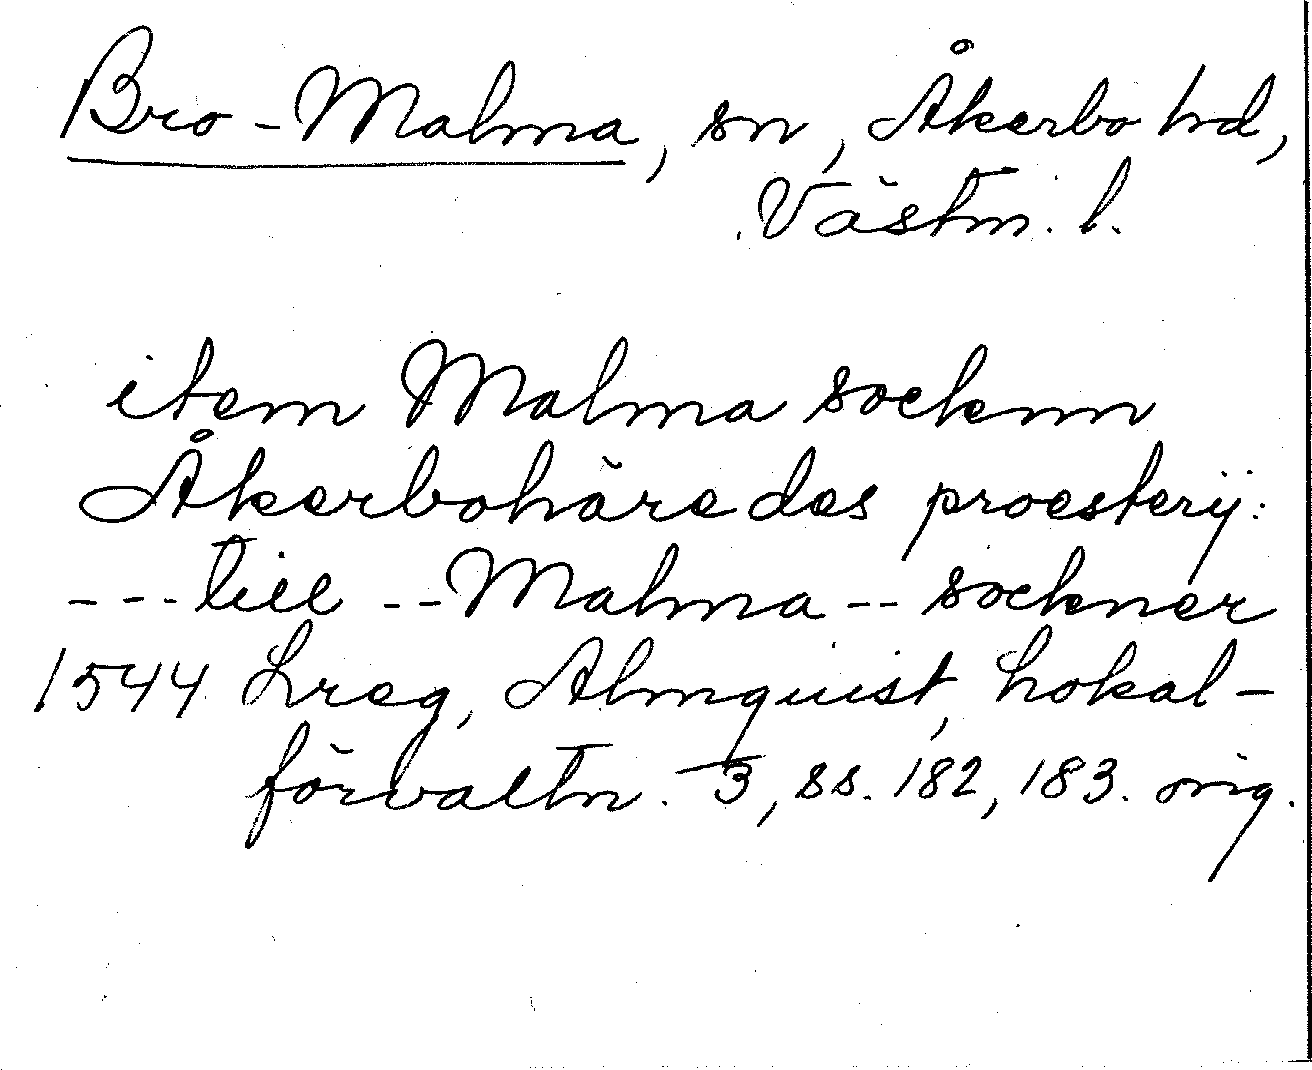 Bro-Malma, sn, Åkerbo hd,
Västm. l.
item Malma sockenn
Åkerbohäredes proesterij:
---till --Malma-- sockner
1544 Lreg, Almquist, Lokal-
förvaltn. 3, ss. 182, 183. orig.